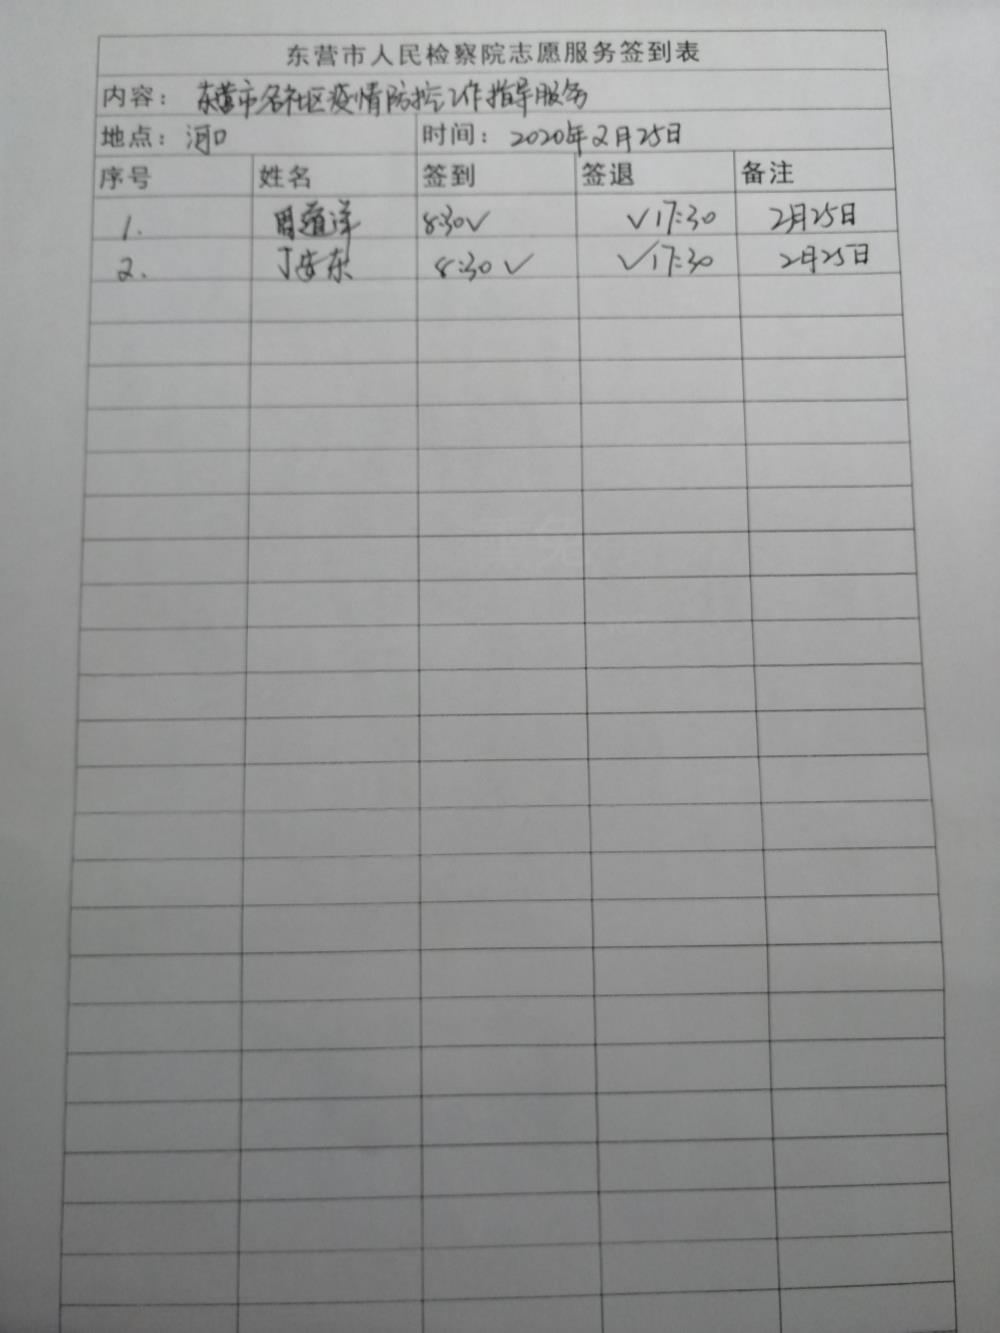 东营市人民检察院志愿服务签到表
内容： 东营市各社区疫情防控工作指导服务
地点： 河口 时间： 2020年2月25日
序号 姓名 签到 签退 备注
1. 周道洋 8:30✓ ✓17:30 2月25日
2. 丁安东 8:30✓ ✓17:30 2月25日